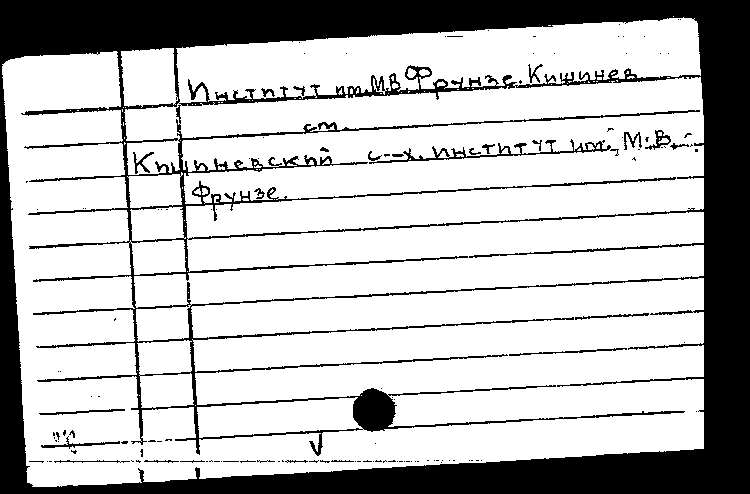 Институт им. М.В. Фрунзе. Кишинев
см.
Кишиневский с-х. институт им. М.В.
Фрунзе.
V